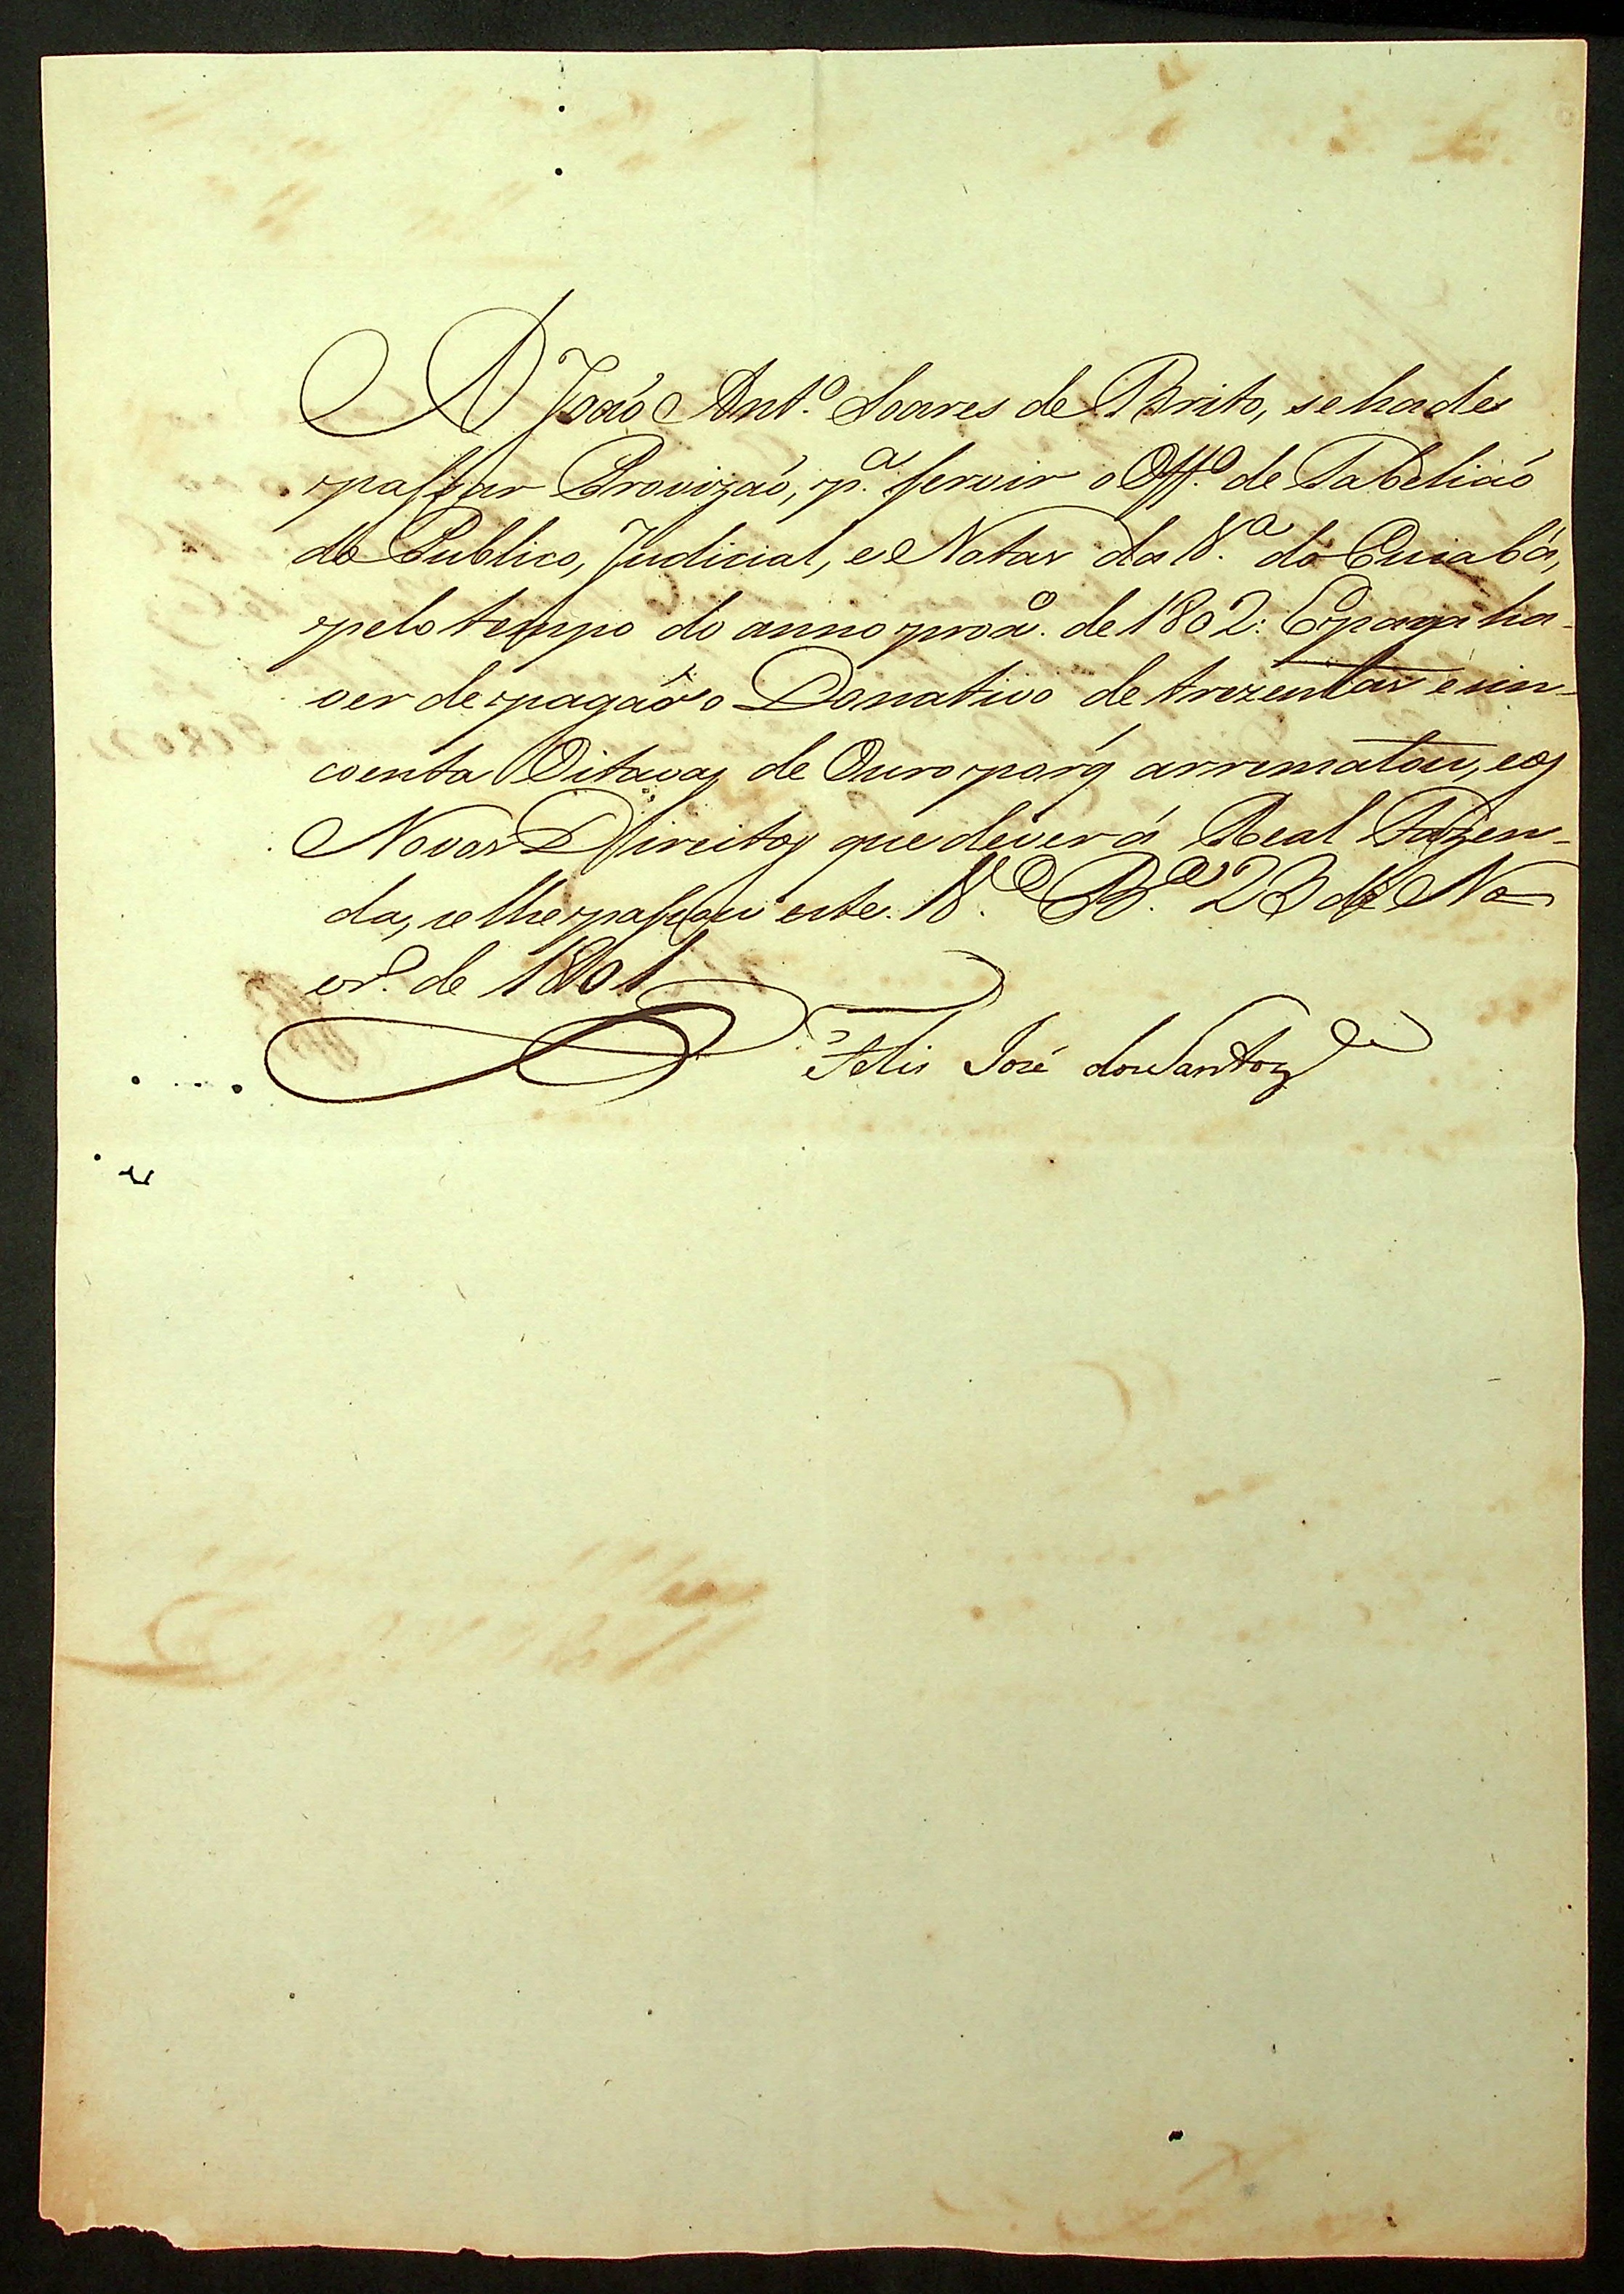 A João Ant.º Soares de Brito, se hade
passar Provizaõ, p.ª servir o Off.º de Tabeliaõ
do Publico, Judicial, e Notas da V.ª do Cuiabá,
pelo tempo do anno prox.º de 1802: E p.ª ha-
ver de pagar o Donativo de trezentas e sin-
coenta Oitavas de Ouro porq̃ arrematou, e os
Novos Direitos que dever á Real Fazen-
da, se lhe passou este. V.ª B.ª 23 de No-
vr.º de 1801
Felis José dos Santos